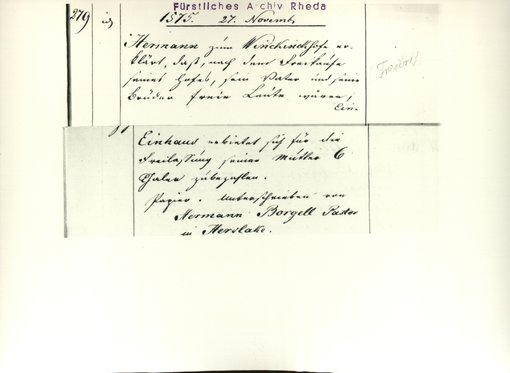 Fürstliches Archiv Rheda
279 1575. 27. Novemb.
Hermann zum Winckinckhofe er-
klärt, daß, nach dem Freikaufe
seines Hofes, sein Vater und seine
Brüder freie Leute wären;
Ein-
Einhaus erbietet sich für die
Freilassung seiner Mutter 6
Thaler zubezahlen.
Papier. Unterschrieben von
Hermann Borgell Pastor
in Herslake.